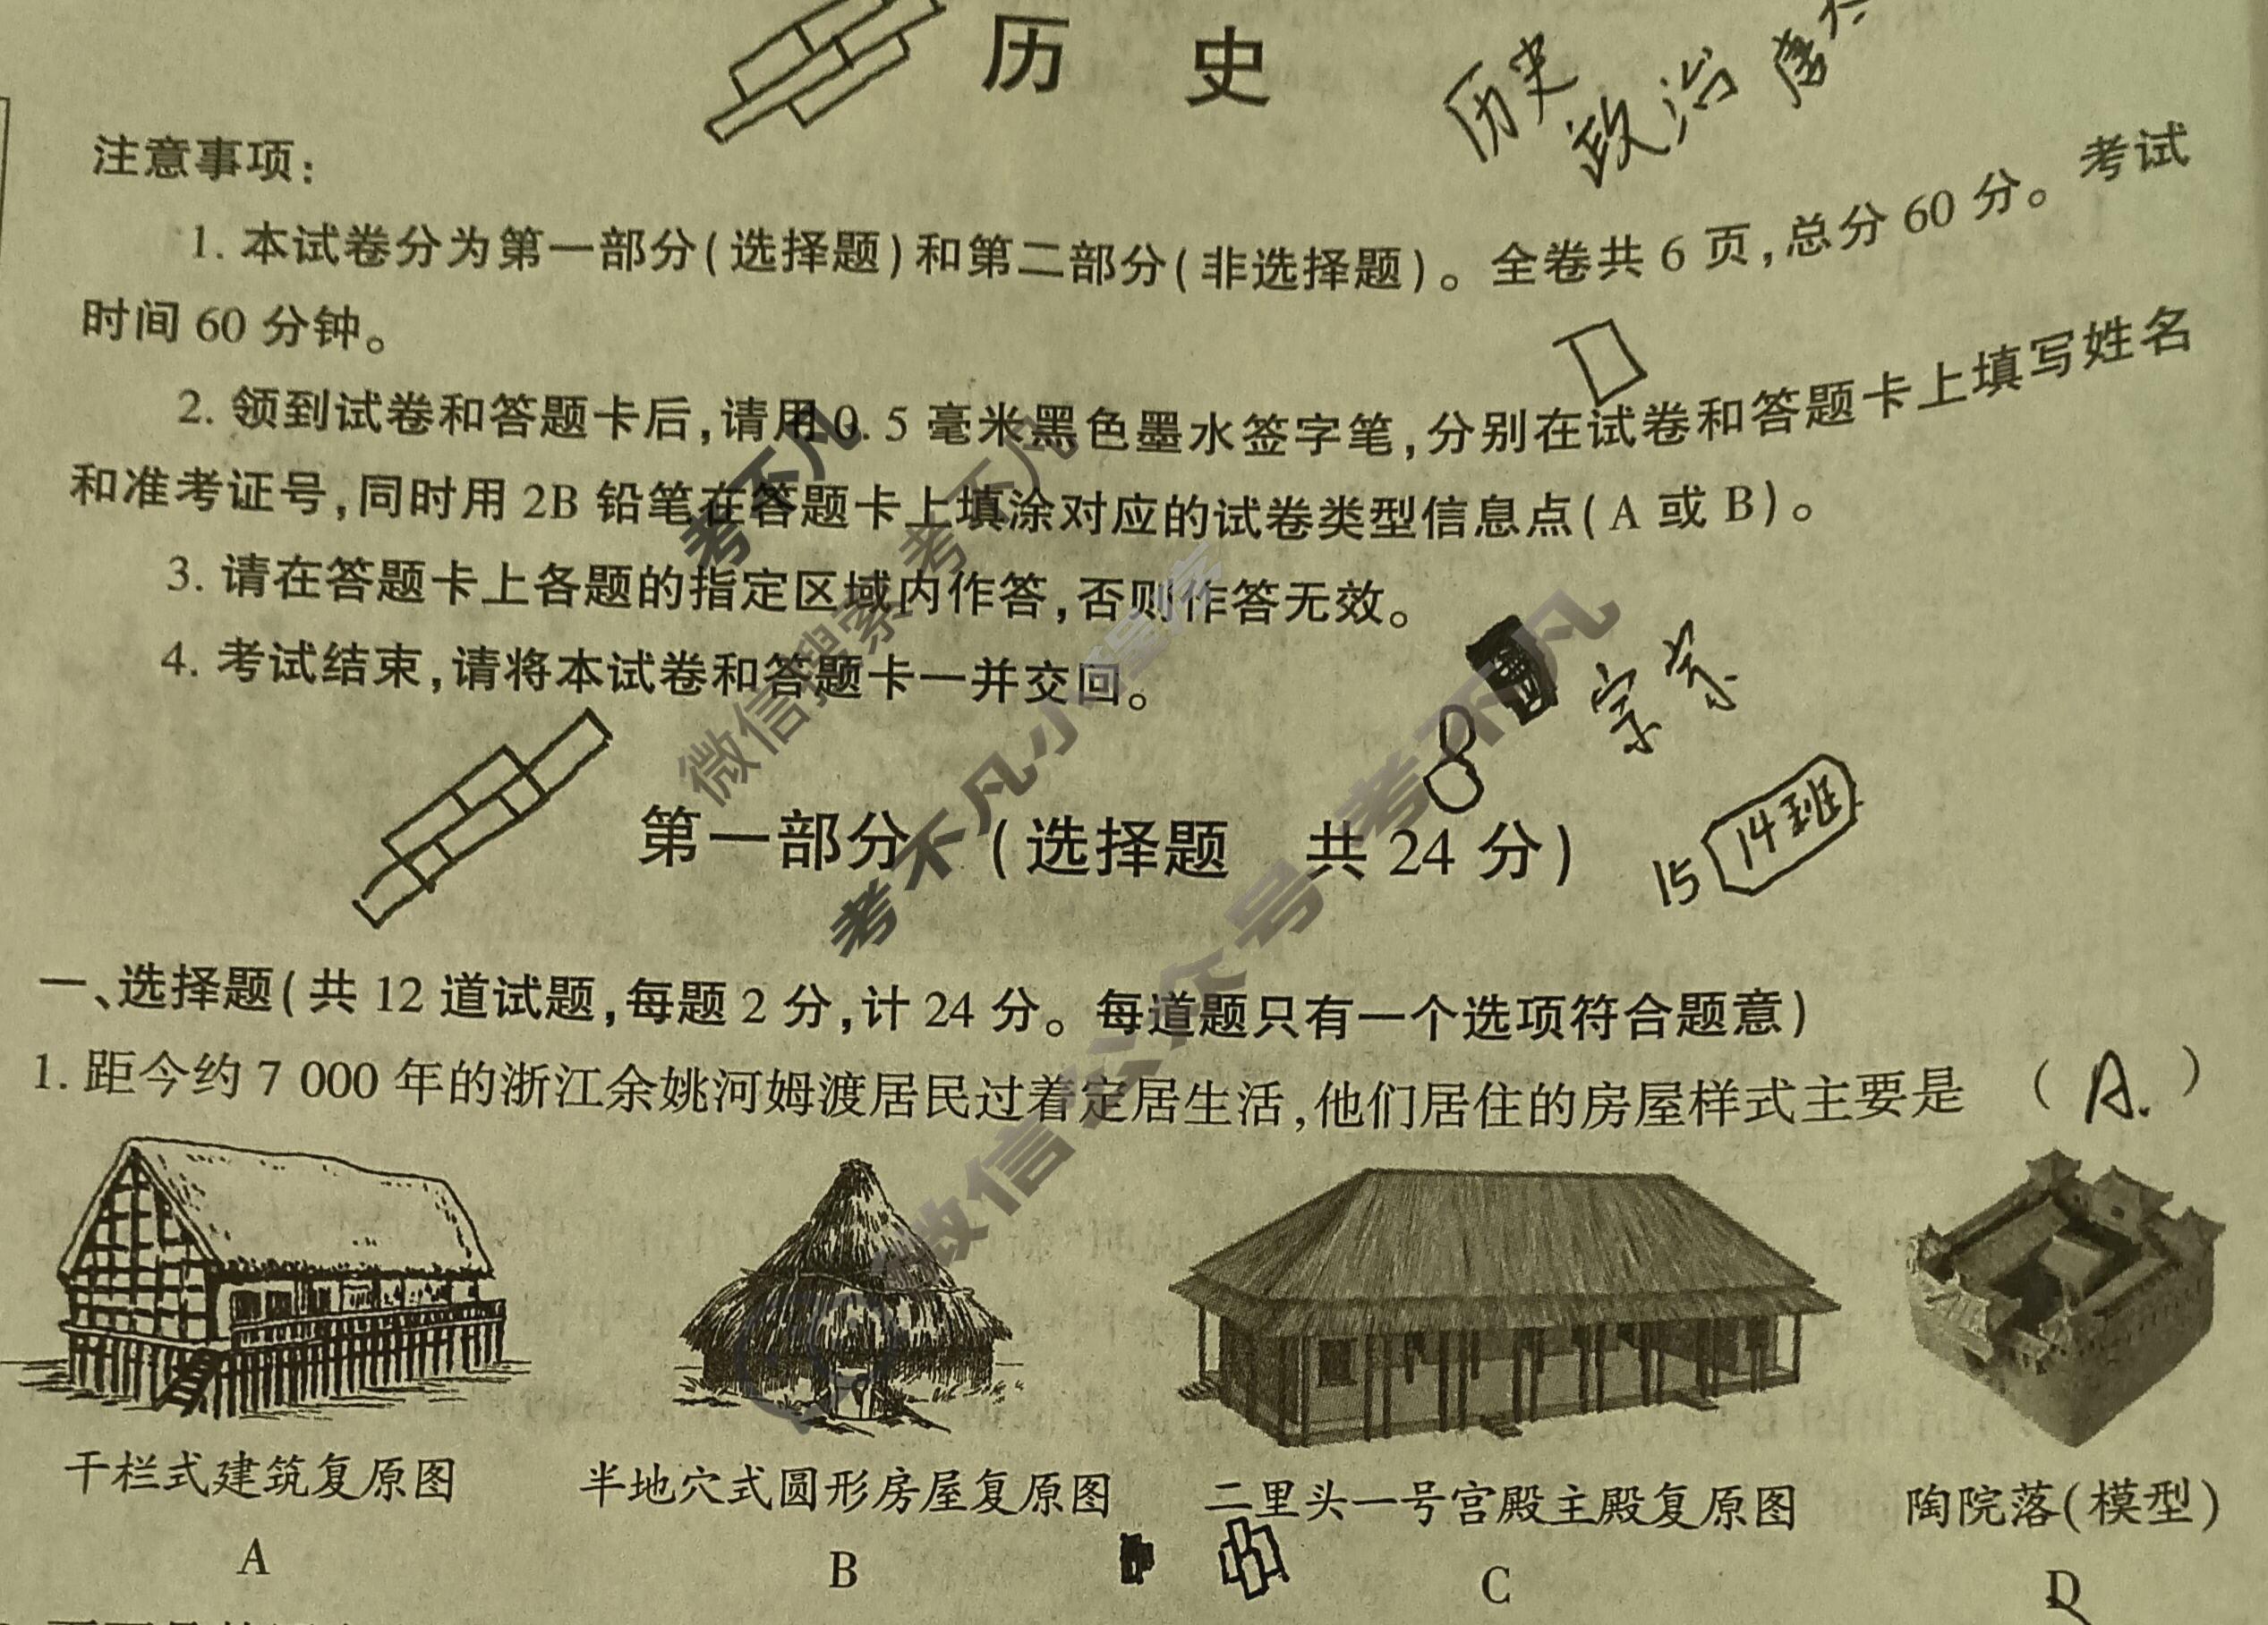 历 史
历史
政治
注意事项:
1. 本试卷分为第一部分(选择题)和第二部分(非选择题)。全卷共 6 页,总分 60 分。考试
时间 60 分钟。
2. 领到试卷和答题卡后,请用 0.5 毫米黑色墨水签字笔,分别在试卷和答题卡上填写姓名
和准考证号,同时用 2B 铅笔在答题卡上填涂对应的试卷类型信息点(A 或 B)。
3. 请在答题卡上各题的指定区域内作答,否则作答无效。
4. 考试结束,请将本试卷和答题卡一并交回。
考不凡
微信搜索 考不凡
考不凡小程序
微信公众号 考不凡
第一部分 (选择题 共 24 分)
15 14班
一、选择题(共 12 道试题,每题 2 分,计 24 分。每道题只有一个选项符合题意)
1. 距今约 7 000 年的浙江余姚河姆渡居民过着定居生活,他们居住的房屋样式主要是 ( A. )
干栏式建筑复原图 半地穴式圆形房屋复原图 二里头一号宫殿主殿复原图 陶院落(模型)
A B C D